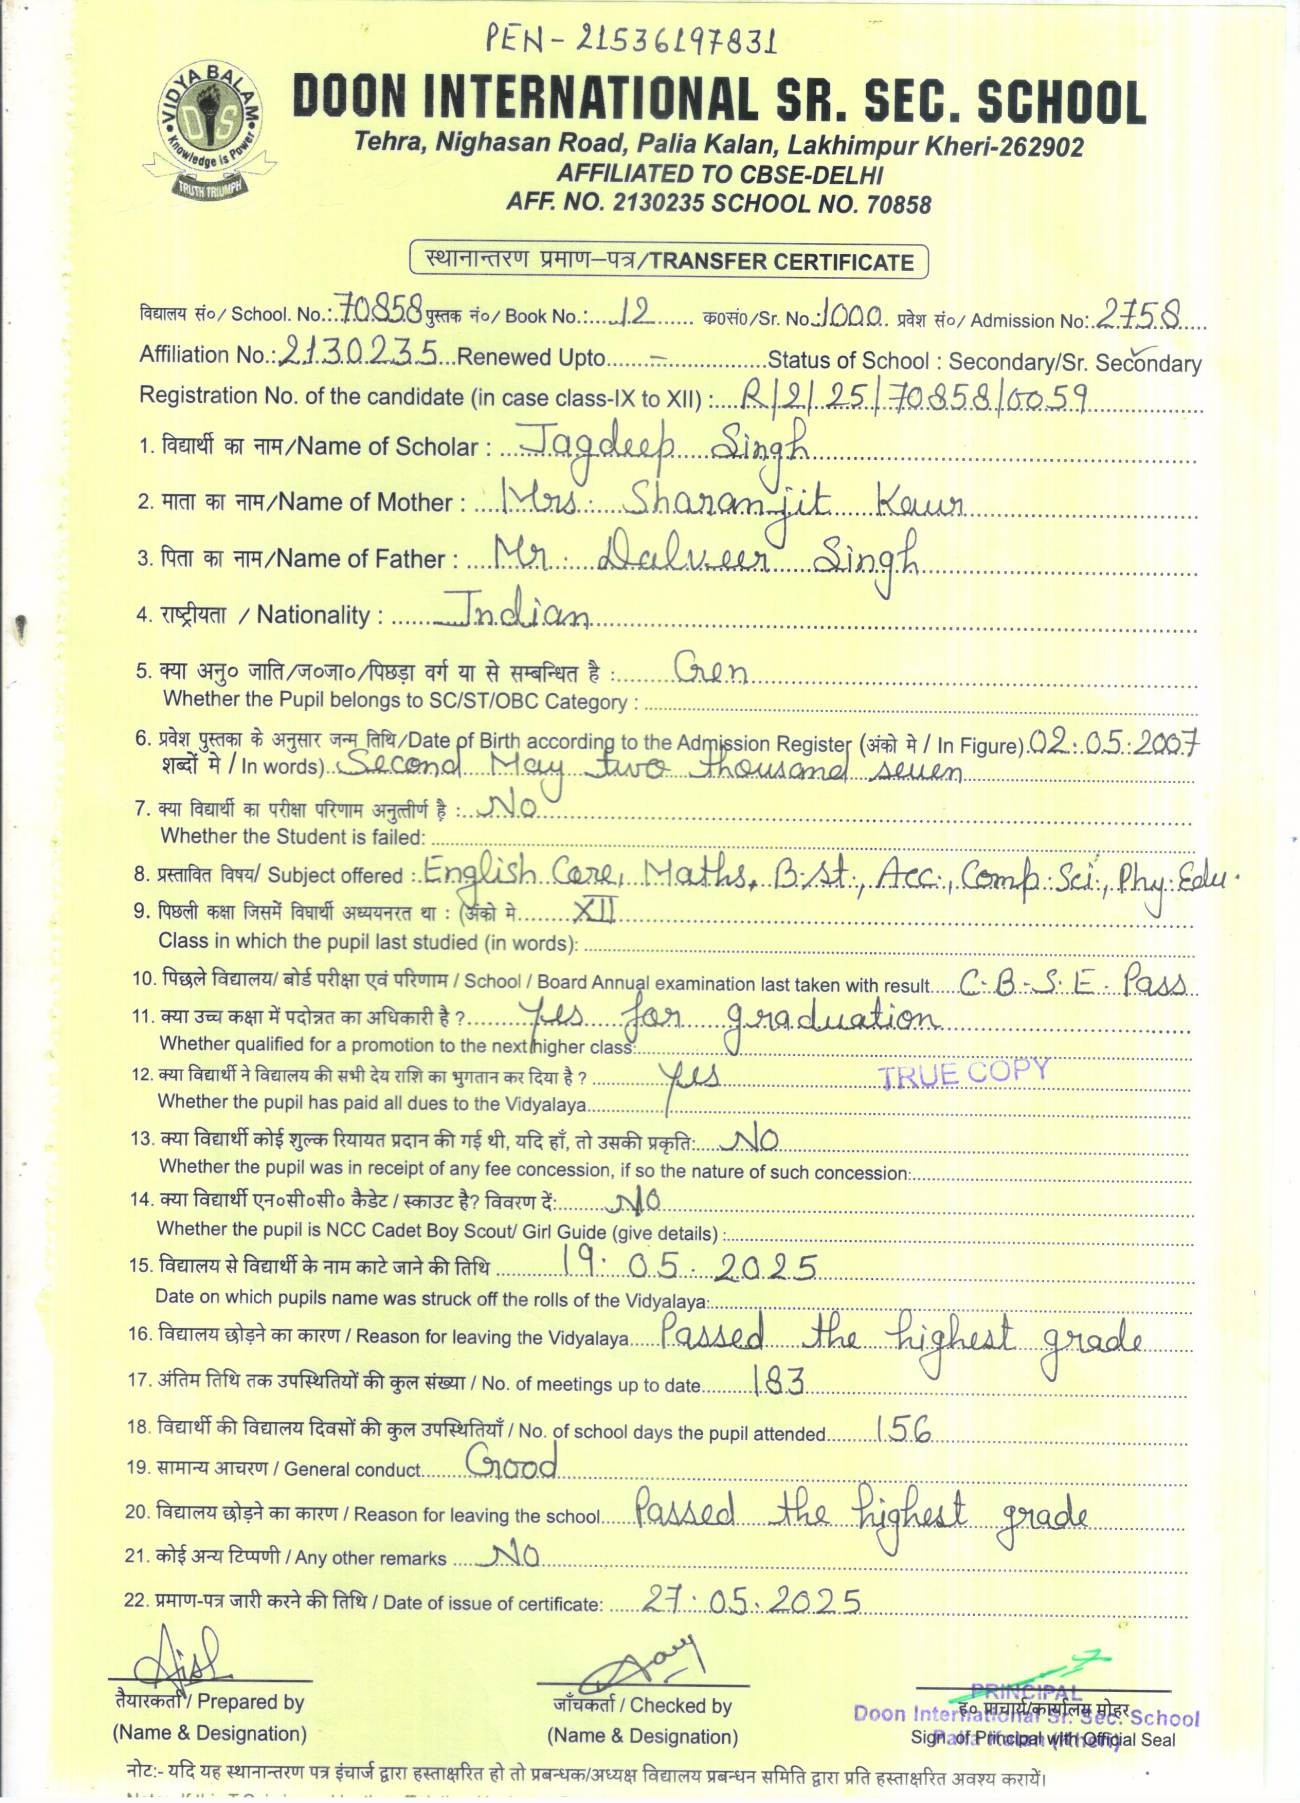 PEN-21536197831
VIDYA BALAM
DIS
Knowledge is Power
TRUTH TRIUMPH
DOON INTERNATIONAL SR. SEC. SCHOOL
Tehra, Nighasan Road, Palia Kalan, Lakhimpur Kheri-262902
AFFILIATED TO CBSE-DELHI
AFF. NO. 2130235 SCHOOL NO. 70858
स्थानान्तरण प्रमाण-पत्र/TRANSFER CERTIFICATE
विद्यालय सं०/ School. No.: 70858 पुस्तक नं०/ Book No.: 12 क०सं०/Sr. No.: 1000 प्रवेश सं०/ Admission No: 2758
Affiliation No.: 2130235 Renewed Upto – Status of School : Secondary/Sr. Secondary
Registration No. of the candidate (in case class-IX to XII) : R/2/25/70858/0059
1. विद्यार्थी का नाम/Name of Scholar : Jagdeep Singh
2. माता का नाम/Name of Mother : Mrs. Sharanjit Kaur
3. पिता का नाम/Name of Father : Mr. Dalveer Singh
4. राष्ट्रीयता / Nationality : Indian
5. क्या अनु० जाति/ज०जा०/पिछड़ा वर्ग या से सम्बन्धित है : Gen
Whether the Pupil belongs to SC/ST/OBC Category :
6. प्रवेश पुस्तका के अनुसार जन्म तिथि/Date of Birth according to the Admission Register (अंको मे / In Figure) 02.05.2007
शब्दों मे / In words) Second May two thousand seven
7. क्या विद्यार्थी का परीक्षा परिणाम अनुत्तीर्ण है : No
Whether the Student is failed:
8. प्रस्तावित विषय/ Subject offered : English Core, Maths, B.St., Acc., Comp. Sci., Phy. Edu.
9. पिछली कक्षा जिसमें विघार्थी अध्ययनरत था : (अंको मे XII
Class in which the pupil last studied (in words):
10. पिछले विद्यालय/ बोर्ड परीक्षा एवं परिणाम / School / Board Annual examination last taken with result C.B.S.E. Pass
11. क्या उच्च कक्षा में पदोन्नत का अधिकारी है ? Yes for graduation
Whether qualified for a promotion to the next higher class:
12. क्या विद्यार्थी ने विद्यालय की सभी देय राशि का भुगतान कर दिया है ? Yes TRUE COPY
Whether the pupil has paid all dues to the Vidyalaya
13. क्या विद्यार्थी कोई शुल्क रियायत प्रदान की गई थी, यदि हाँ, तो उसकी प्रकृति: NO
Whether the pupil was in receipt of any fee concession, if so the nature of such concession:
14. क्या विद्यार्थी एन०सी०सी० कैडेट / स्काउट है? विवरण दें: NO
Whether the pupil is NCC Cadet Boy Scout/ Girl Guide (give details) :
15. विद्यालय से विद्यार्थी के नाम काटे जाने की तिथि 19.05.2025
Date on which pupils name was struck off the rolls of the Vidyalaya:
16. विद्यालय छोड़ने का कारण / Reason for leaving the Vidyalaya Passed the highest grade
17. अंतिम तिथि तक उपस्थितियों की कुल संख्या / No. of meetings up to date 183
18. विद्यार्थी की विद्यालय दिवसों की कुल उपस्थितियाँ / No. of school days the pupil attended 156
19. सामान्य आचरण / General conduct Good
20. विद्यालय छोड़ने का कारण / Reason for leaving the school Passed the highest grade
21. कोई अन्य टिप्पणी / Any other remarks NO
22. प्रमाण-पत्र जारी करने की तिथि / Date of issue of certificate: 27.05.2025
तैयारकर्ता / Prepared by
(Name & Designation)
जाँचकर्ता / Checked by
(Name & Designation)
PRINCIPAL
ह० प्राचार्य/कार्यालय मोहर
Doon International Sr. Sec. School
Sign. of Principal with Official Seal
नोट:- यदि यह स्थानान्तरण पत्र इंचार्ज द्वारा हस्ताक्षरित हो तो प्रबन्धक/अध्यक्ष विद्यालय प्रबन्धन समिति द्वारा प्रति हस्ताक्षरित अवश्य करायें।